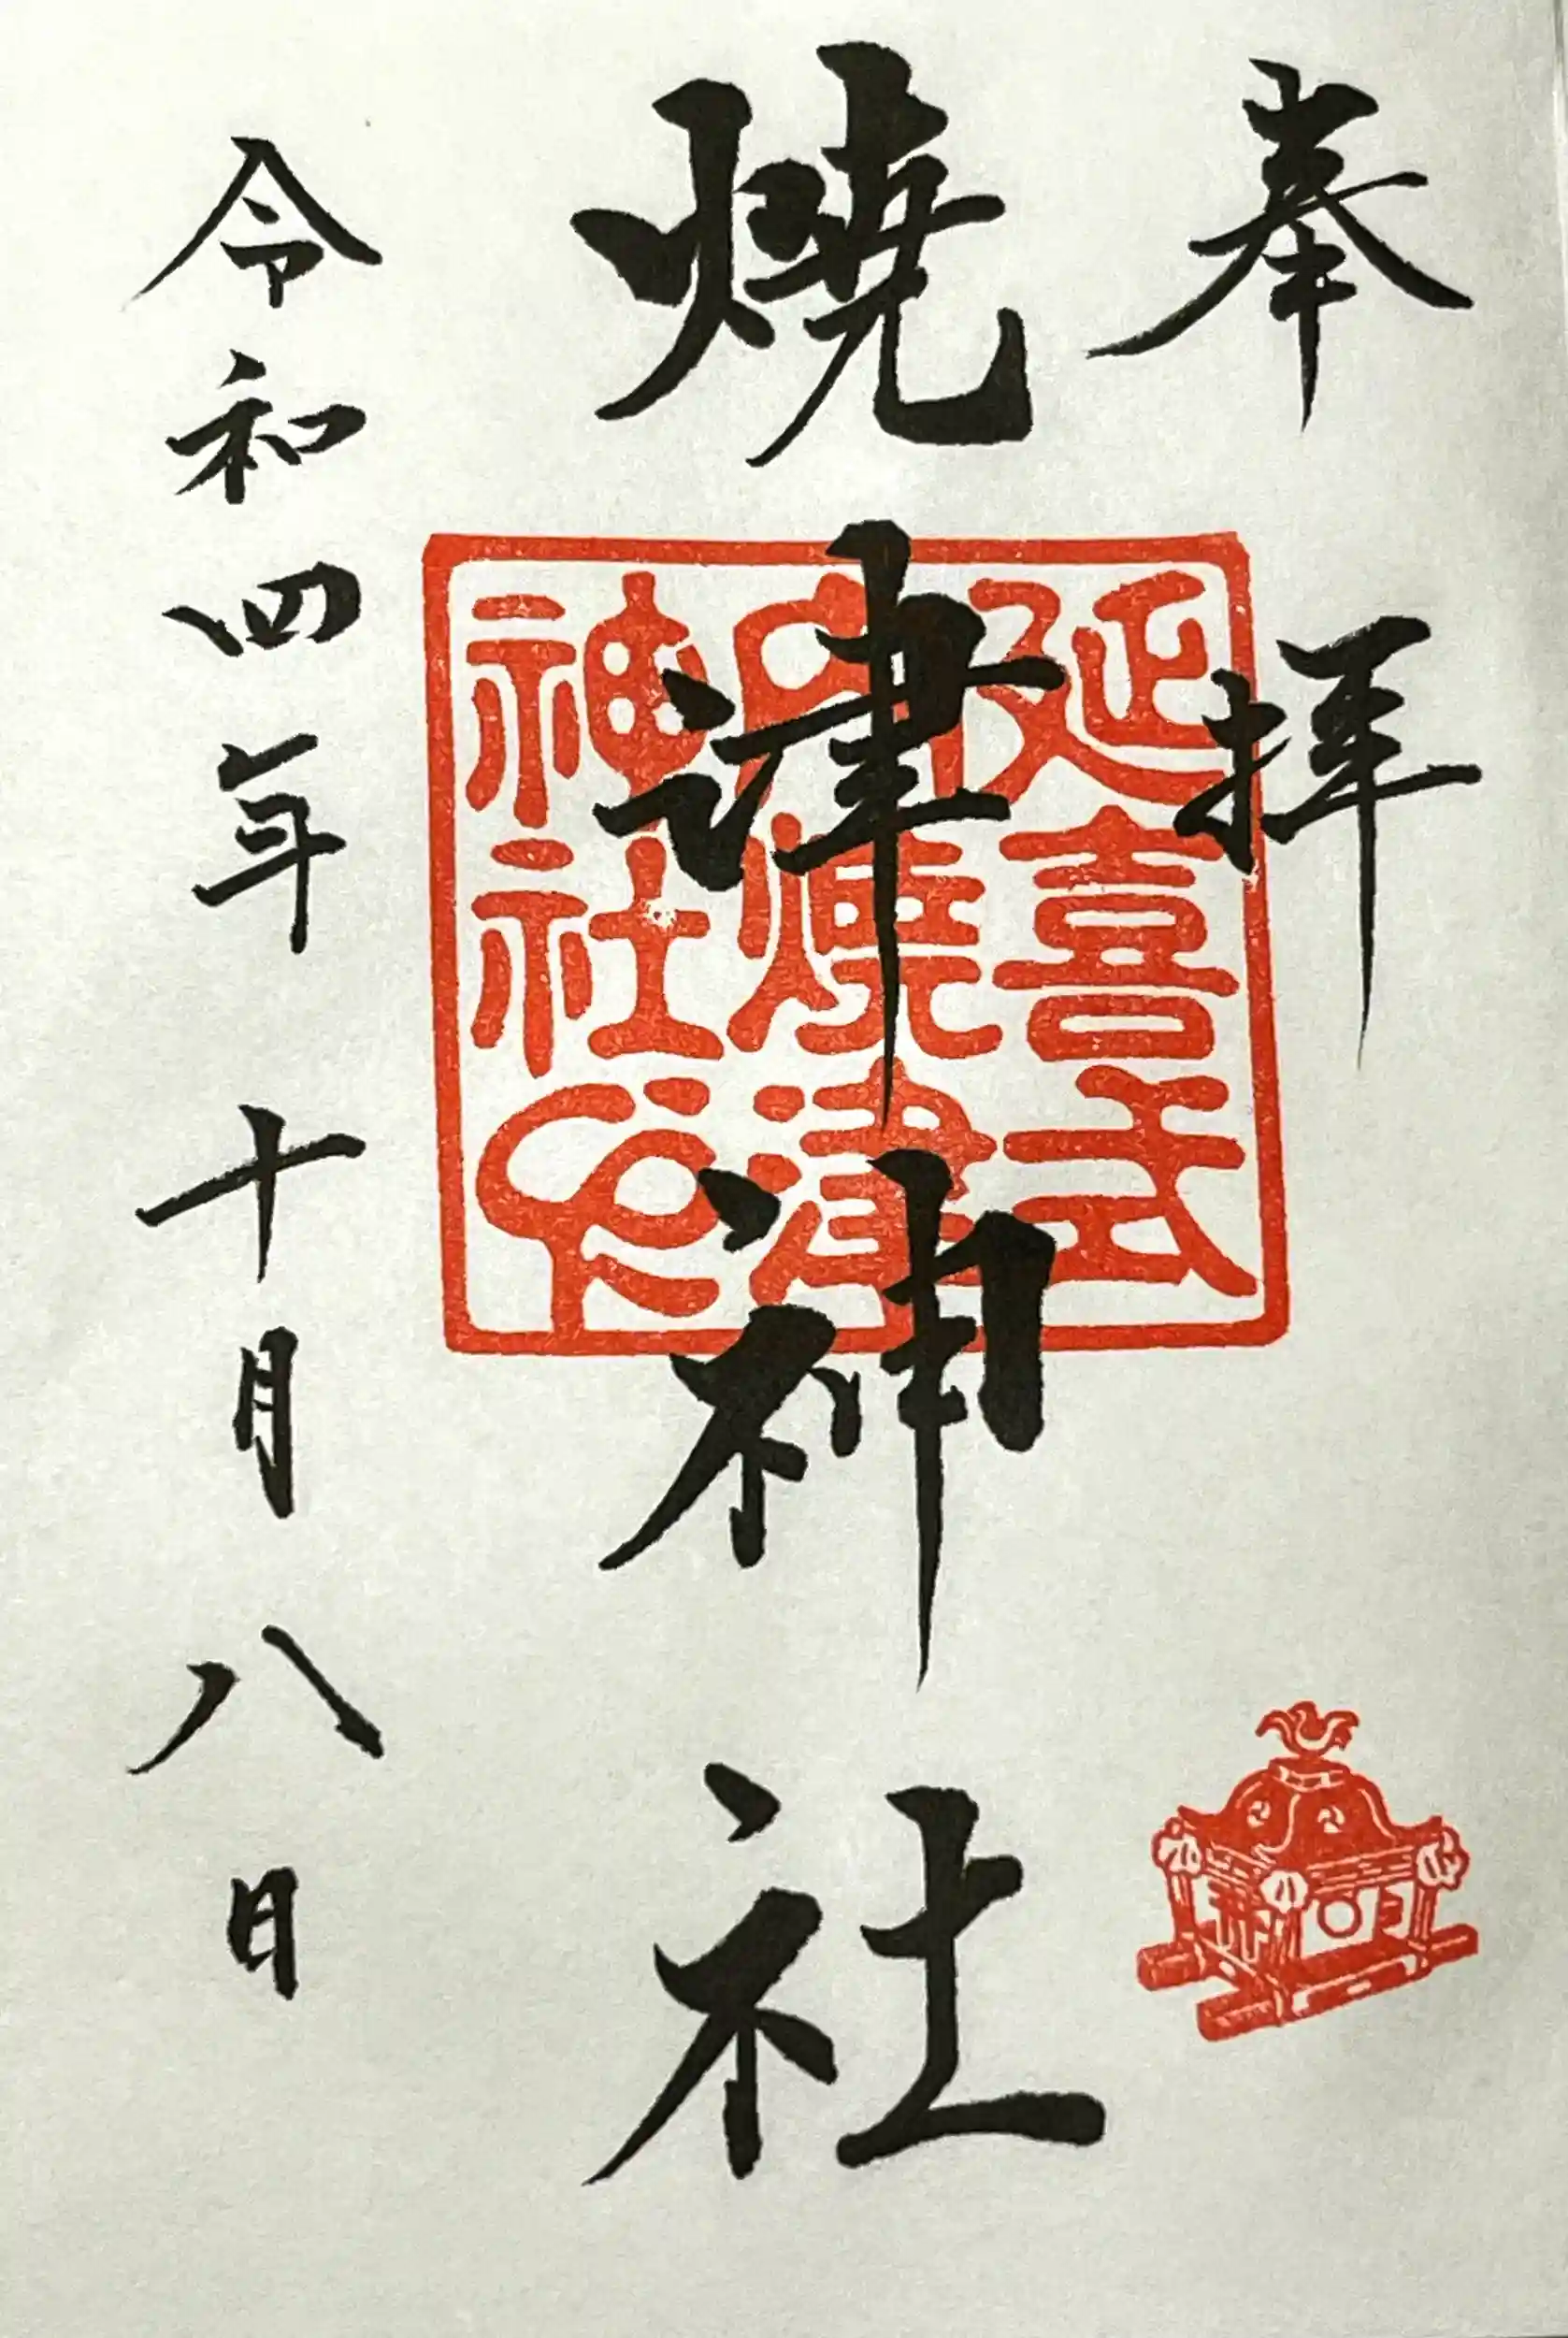 奉拝
燒津神社
令和四年十月八日
延喜式
内燒津
神社印